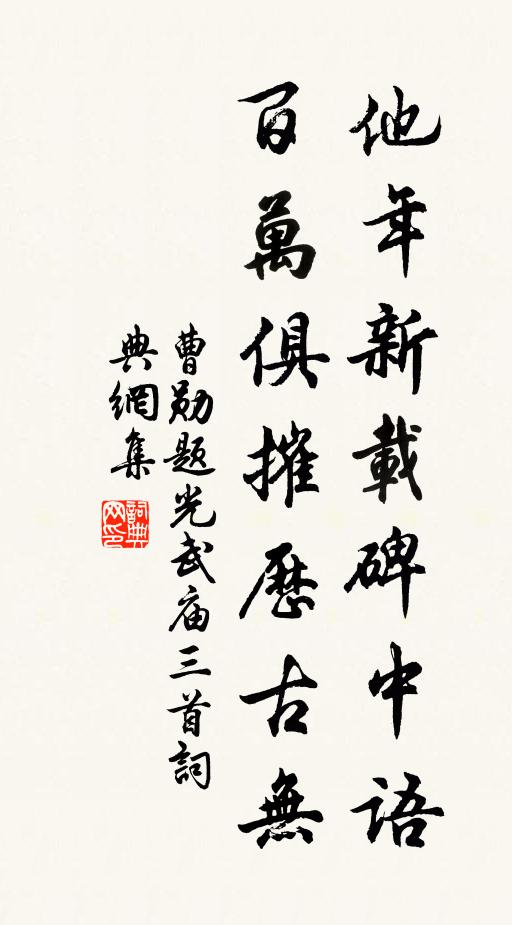 他年新載碑中語
百萬俱摧歷古無
曹勛題光武廟三首詞
典網集
詞典
网印